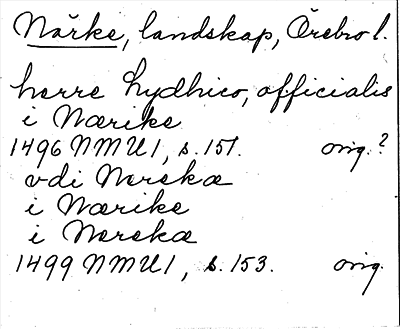 Närke, landskap, Örebro l.
herre Lydhico, officialis
i Nærike
1496 NMU1, s. 151. orig.?
vdi Nerskæ
i Nærike
i Nerskæ
1499 NMU1, s. 153. orig.